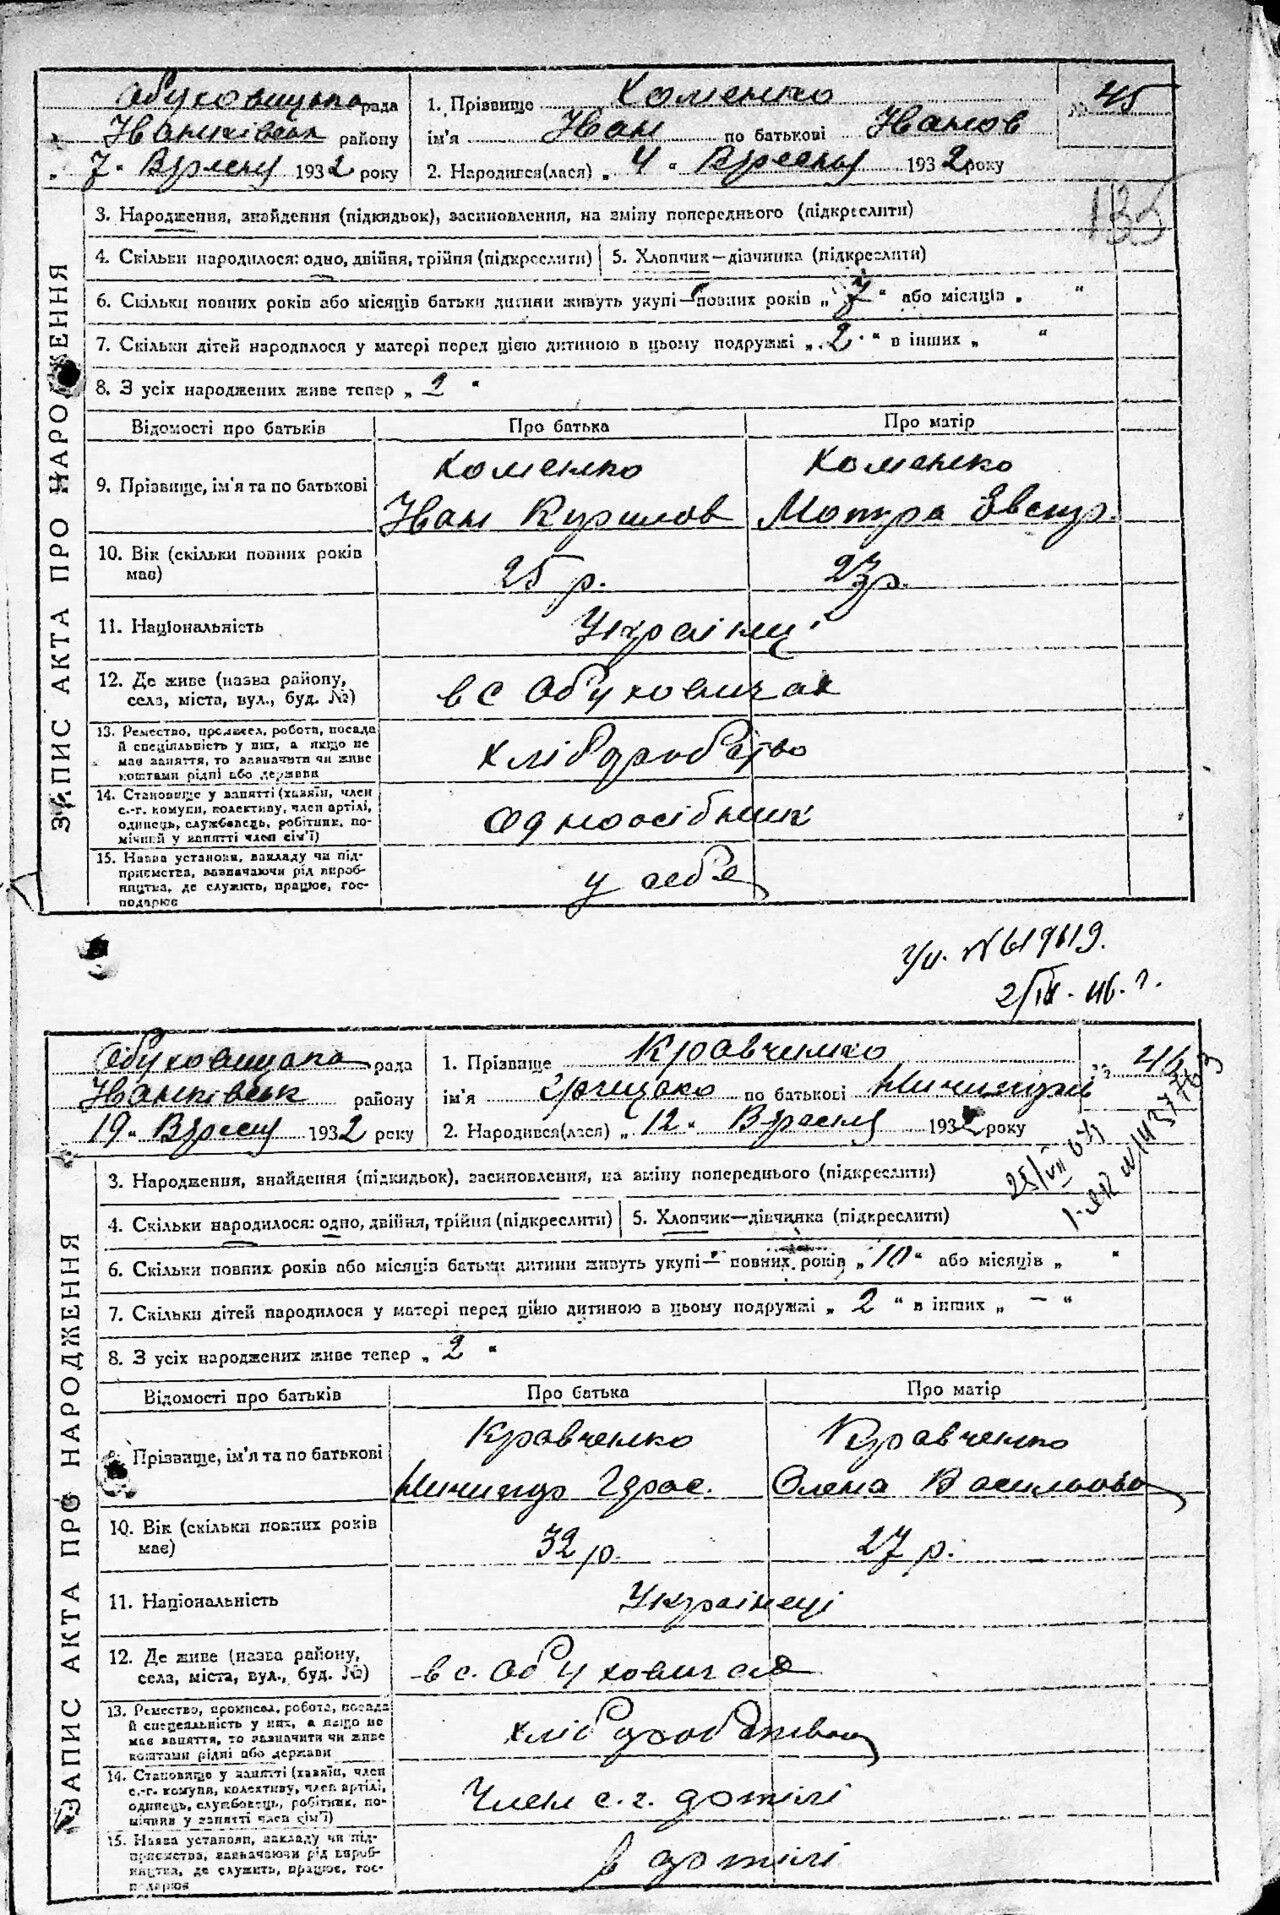 ЗАПИС АКТА ПРО НАРОДЖЕННЯ
Обуховицька рада
Іванківськ району
7 " Вересня 1932 року
1. Прізвище Хоменко
ім'я Іван по батькові Іванов
2. Народився(лася) „ 4 " Вересня 1932 року
№ 45
135
3. Народження, знайдення (підкидьок), всиновлення, на зміну попереднього (підкреслити)
4. Скільки народилося: одно, двійня, трійня (підкреслити)
5. Хлопчик—дівчинка (підкреслити)
6. Скільки повних років або місяців батьки дитини живуть укупі—повних років „ 7 " або місяців „ "
7. Скільки дітей народилося у матері перед цією дитиною в цьому подружжі „ 2 " в інших „ "
8. З усіх народжених живе тепер „ 2 "
Відомості про батьків Про батька Про матір
9. Прізвище, ім'я та по батькові
Хоменко Хоменко
Іван Курилов Мотря
10. Вік (скільки повних років має)
25 р. 27 р.
11. Національність
Українці
12. Де живе (назва району, села, міста, вул., буд. №)
в с Обуховичах
13. Ремество, промисел, робота, посада й спеціяльність у них, а якщо не має заняття, то зазначити чи живе коштами рідні або держави
хліборобство
14. Становище у занятті (хазяїн, член с.-г. комуни, колективу, член артілі, одинець, службовець, робітник, помічний у занятті член сім'ї)
Одноосібник
15. Назва установи, закладу чи підприємства, зазначаючи рід виробництва, де служить, працює, господарює
у себе
№ 619619.
2/IX-46. г.
ЗАПИС АКТА ПРО НАРОДЖЕННЯ
Обуховицька рада
Іванківськ району
19 " Вересн 1932 року
1. Прізвище Кравченко
ім'я Грицько по батькові
2. Народився(лася) „ 12 " Вересня 1932 року
№ 46
3. Народження, знайдення (підкидьок), всиновлення, на зміну попереднього (підкреслити)
4. Скільки народилося: одно, двійня, трійня (підкреслити)
5. Хлопчик—дівчинка (підкреслити)
6. Скільки повних років або місяців батьки дитини живуть укупі— повних років „ 10 " або місяців „ "
7. Скільки дітей народилося у матері перед цією дитиною в цьому подружжі „ 2 " в інших „ — "
8. З усіх народжених живе тепер „ 2 "
Відомості про батьків Про батька Про матір
9. Прізвище, ім'я та по батькові
Кравченко Кравченко
Ничипор Олена Васильовн
10. Вік (скільки повних років має)
32 р. 27 р.
11. Національність
Українеці
12. Де живе (назва району, села, міста, вул., буд. №)
в с. Обуховичах
13. Ремество, промисел, робота, посада й спеціяльність у них, а якщо не має заняття, то зазначити чи живе коштами рідні або держави
хліборобство
14. Становище у занятті (хазяїн, член с.-г. комуни, колективу, член артілі, одинець, службовець, робітник, помічний у занятті член сім'ї)
Член с. г. артілі
15. Назва установи, закладу чи підприємства, зазначаючи рід виробництва, де служить, працює, господарює
в артілі